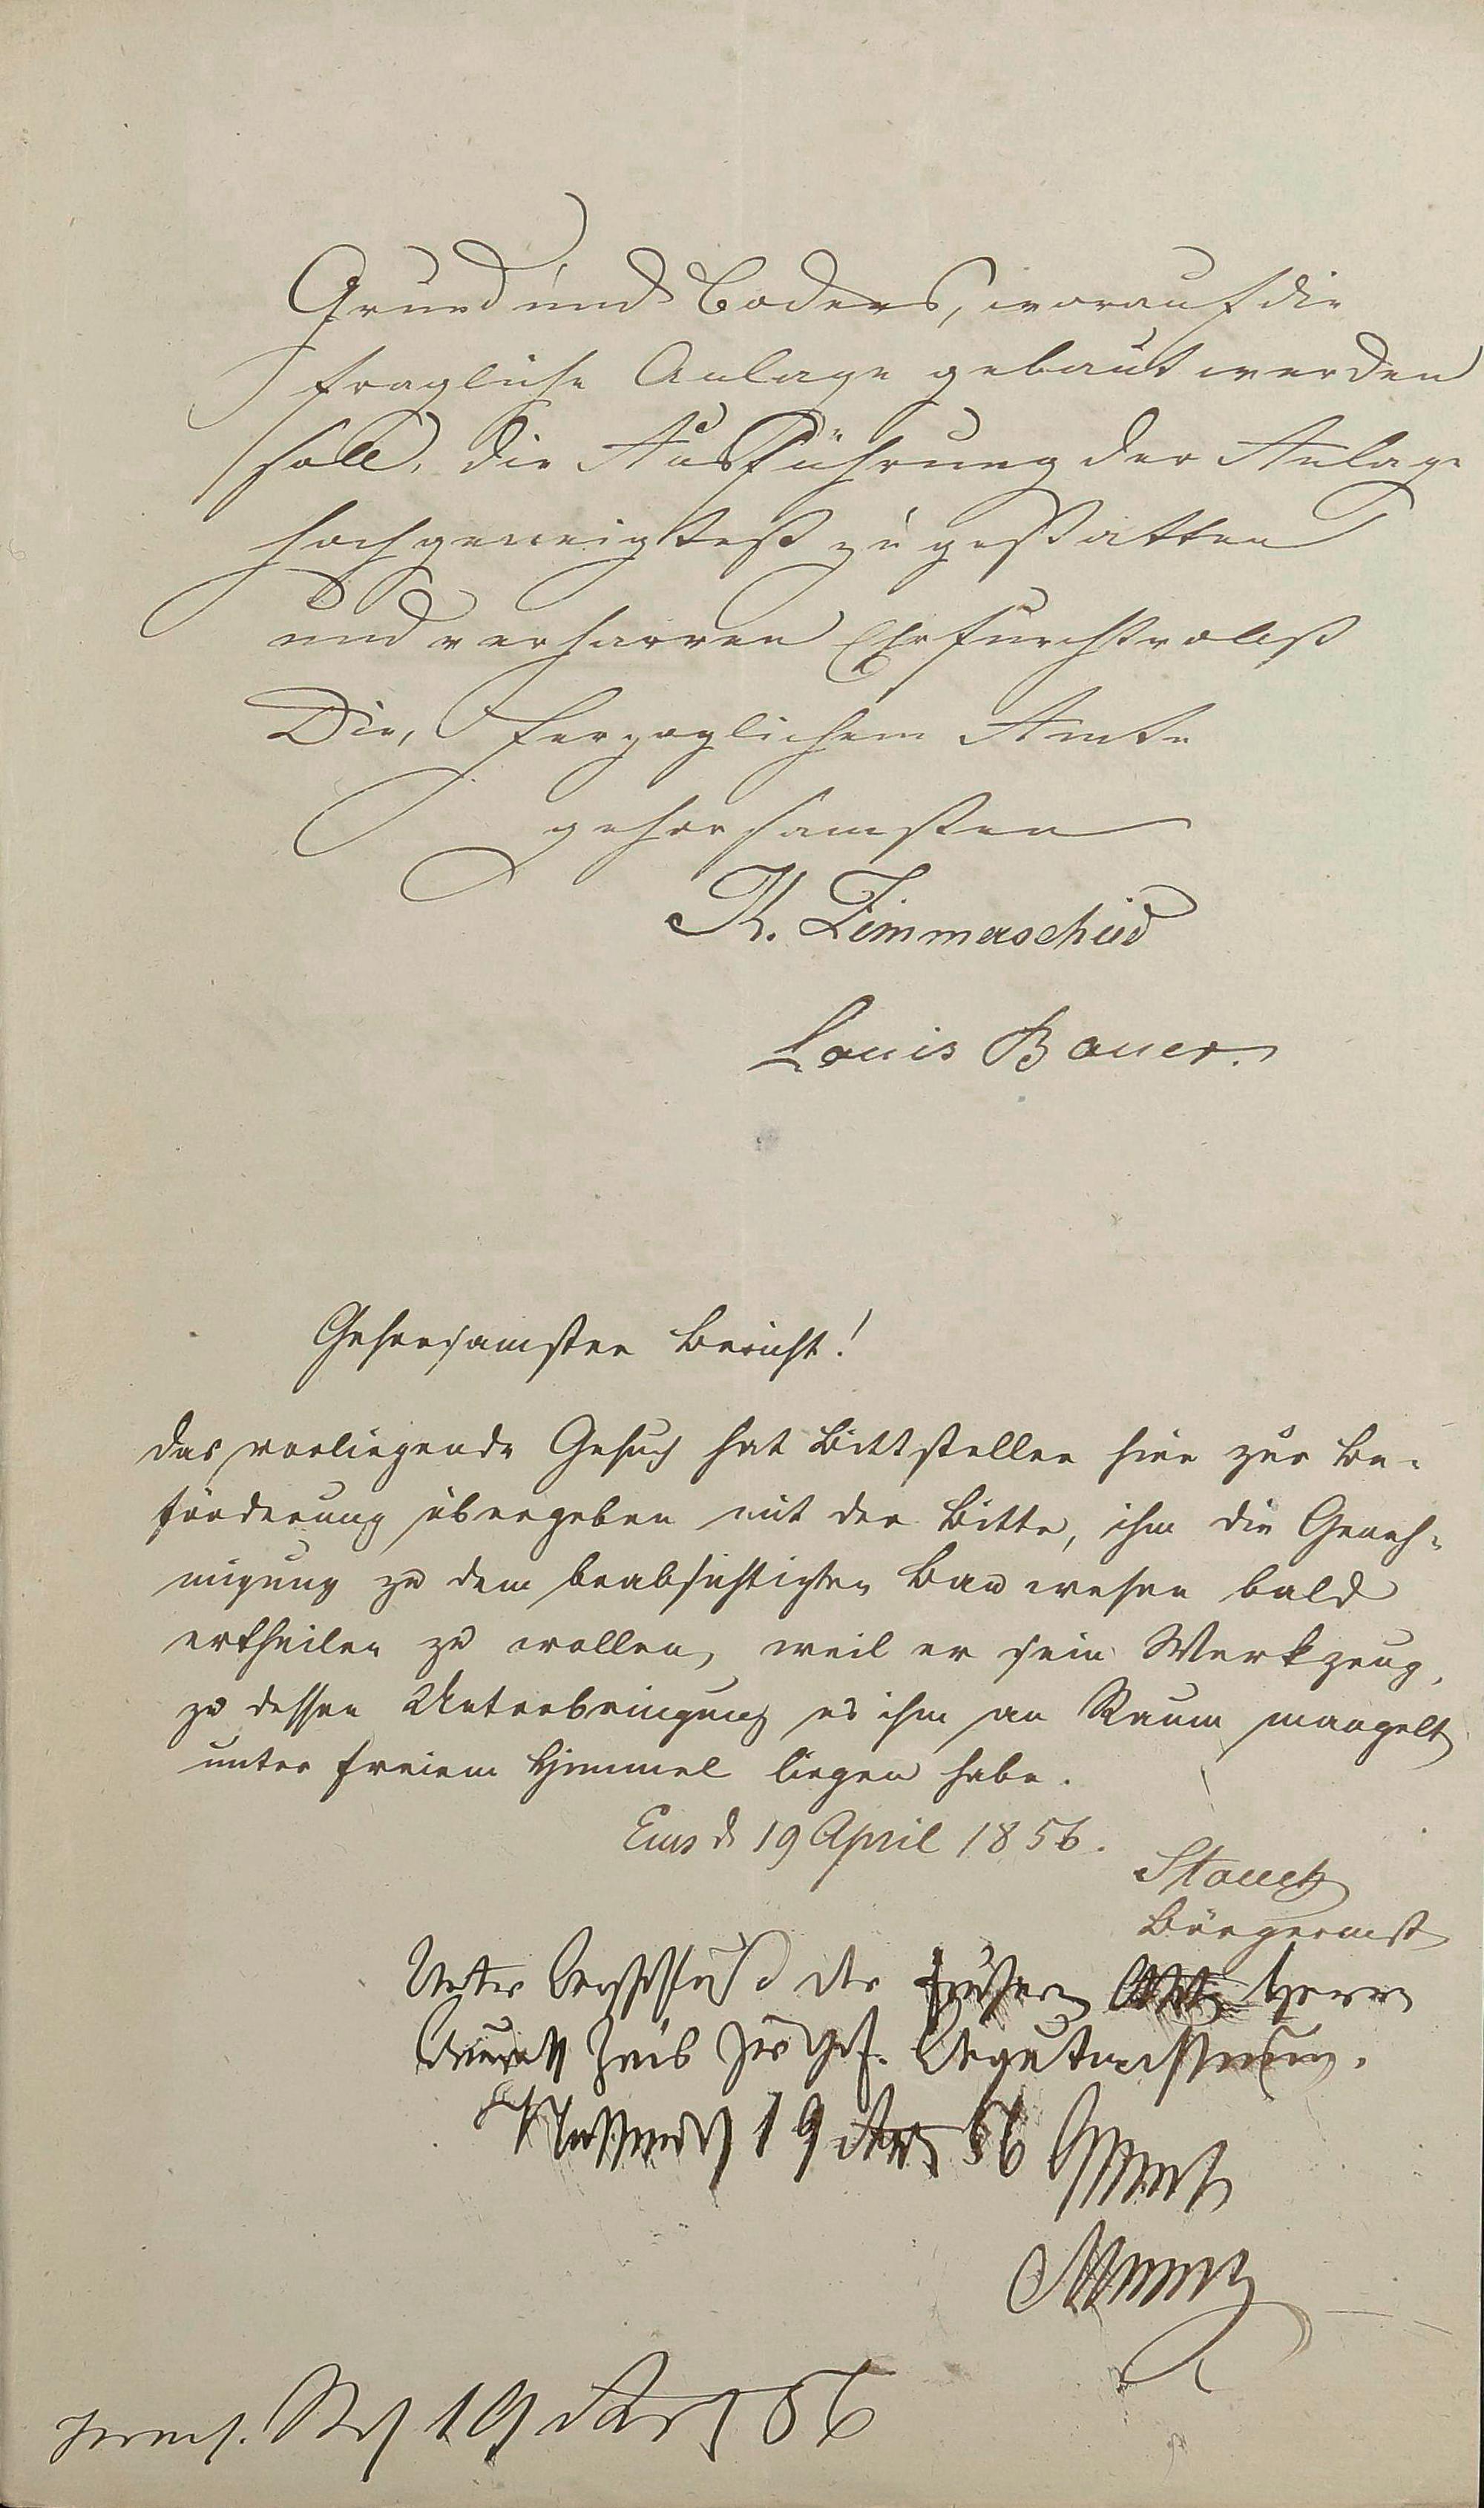 Grund und Bodens, worauf die
fragliche Anlage gebaut werden
soll, die Ausführung der Anlage
hochgeneigtest zu gestatten
und verharren Ehrfurchtsvollst
Die, Herzoglichem Amte
gehorsamsten
K. Zimmerschied
Louis Bauer.
Gehorsamster Bericht!
Das vorliegende Gesuch hat Bittsteller hier zur Be-
förderung übergeben mit der Bitte, ihm die Geneh-
migung zu dem beabsichtigten Bauwesen bald
ertheilen zu wollen, weil er sein Werkzeug,
zu dessen Unterbringung es ihm an Raum mangelt
unter freiem Himmel liegen habe.
Ems d 19 April 1856.
Bürgermst
Unter der Herrn
19 56
19 56